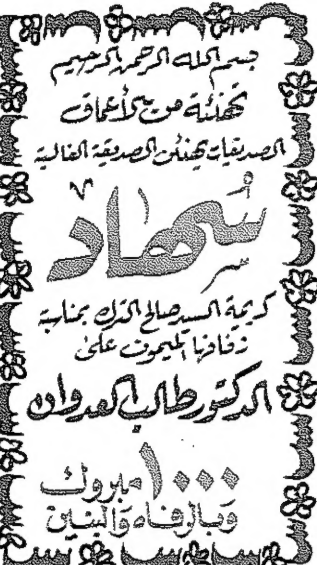 بسم الله الرحمن الرحيم
تهنئة من الأعماق
الصديقات يهنئن الصديقة الغالية
سُهاد
كريمة السيد صالح الترك بمناسبة
زفافها الميمون على
الدكتور طالب العدوان
١٠٠٠ مبروك
وبالرفاه والبنين